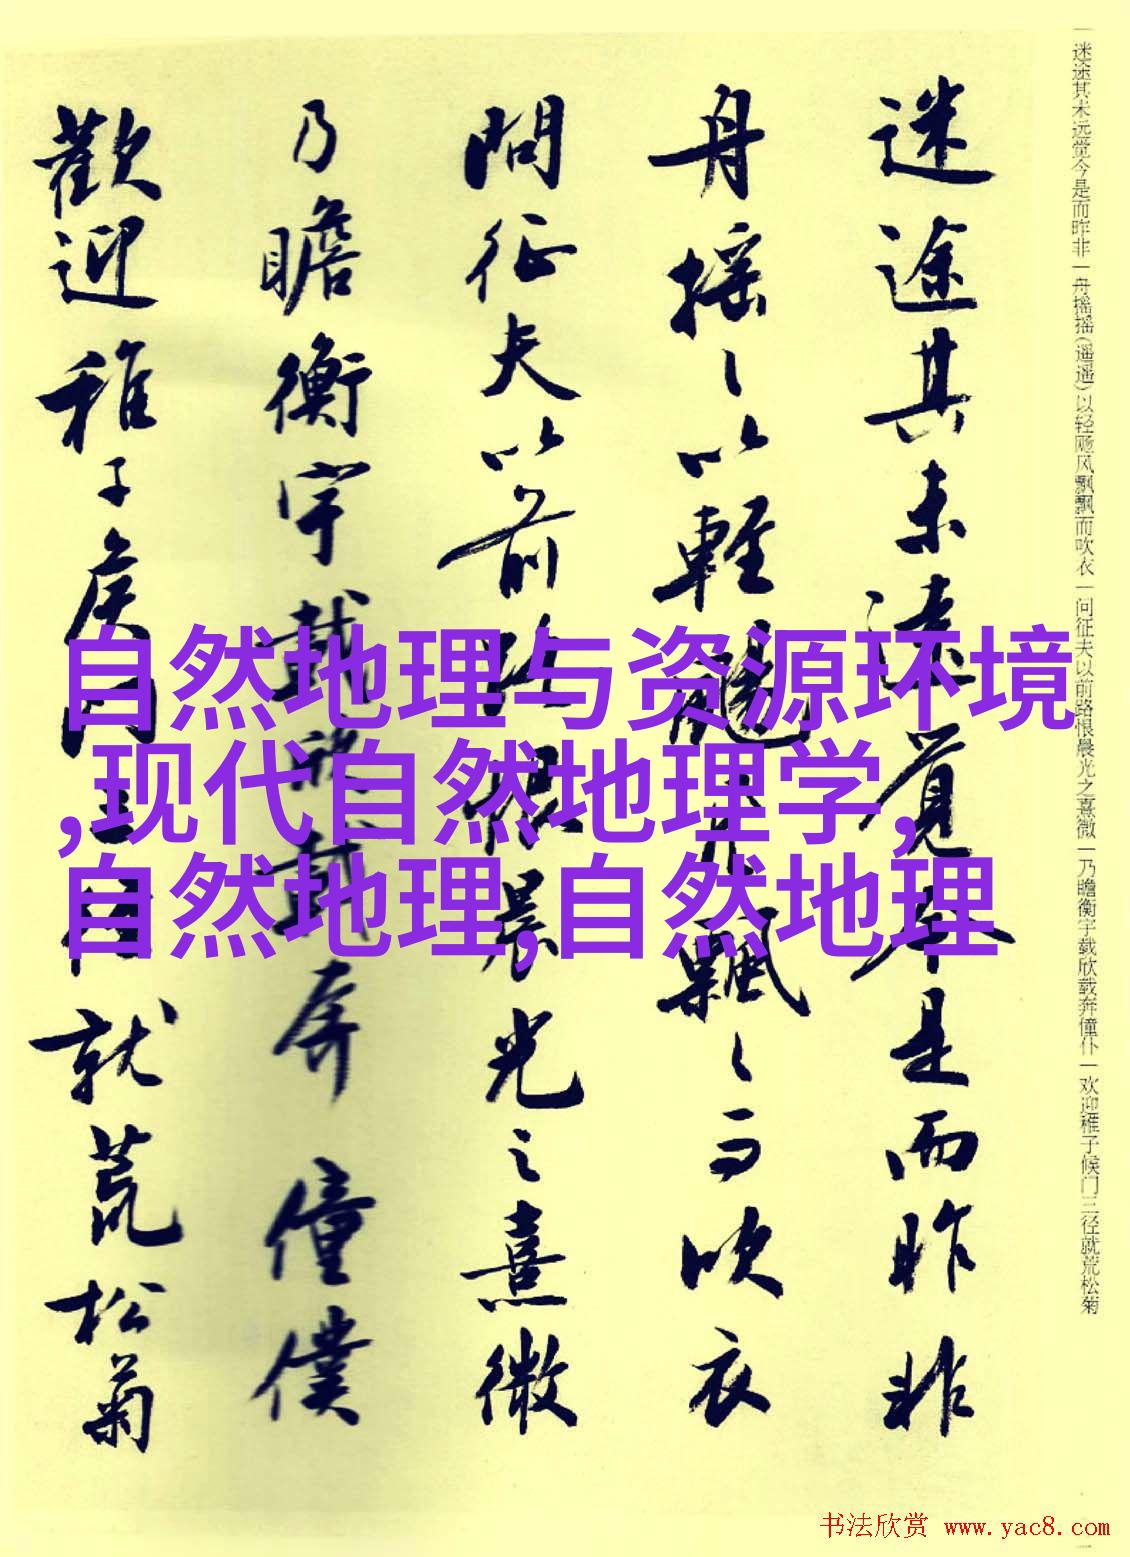 一迷途其未远觉今是而昨非一舟摇摇(遥遥)以轻飏风飘飘而吹衣一问征夫以前路恨晨光之熹微一乃瞻衡宇载欣载奔僮仆一欢迎稚子候门三径就荒松菊
迷途其未遠覺今是而昨非
舟摇〻以輕颺風飄〻而吹衣
問征夫以前路恨晨光之熹微
乃瞻衡宇載欣載奔僮僕
歡迎稚子候門三徑就荒松菊
自然地理与资源环境
,现代自然地理学,
自然地理,自然地理
书法欣赏 www.yac8.com